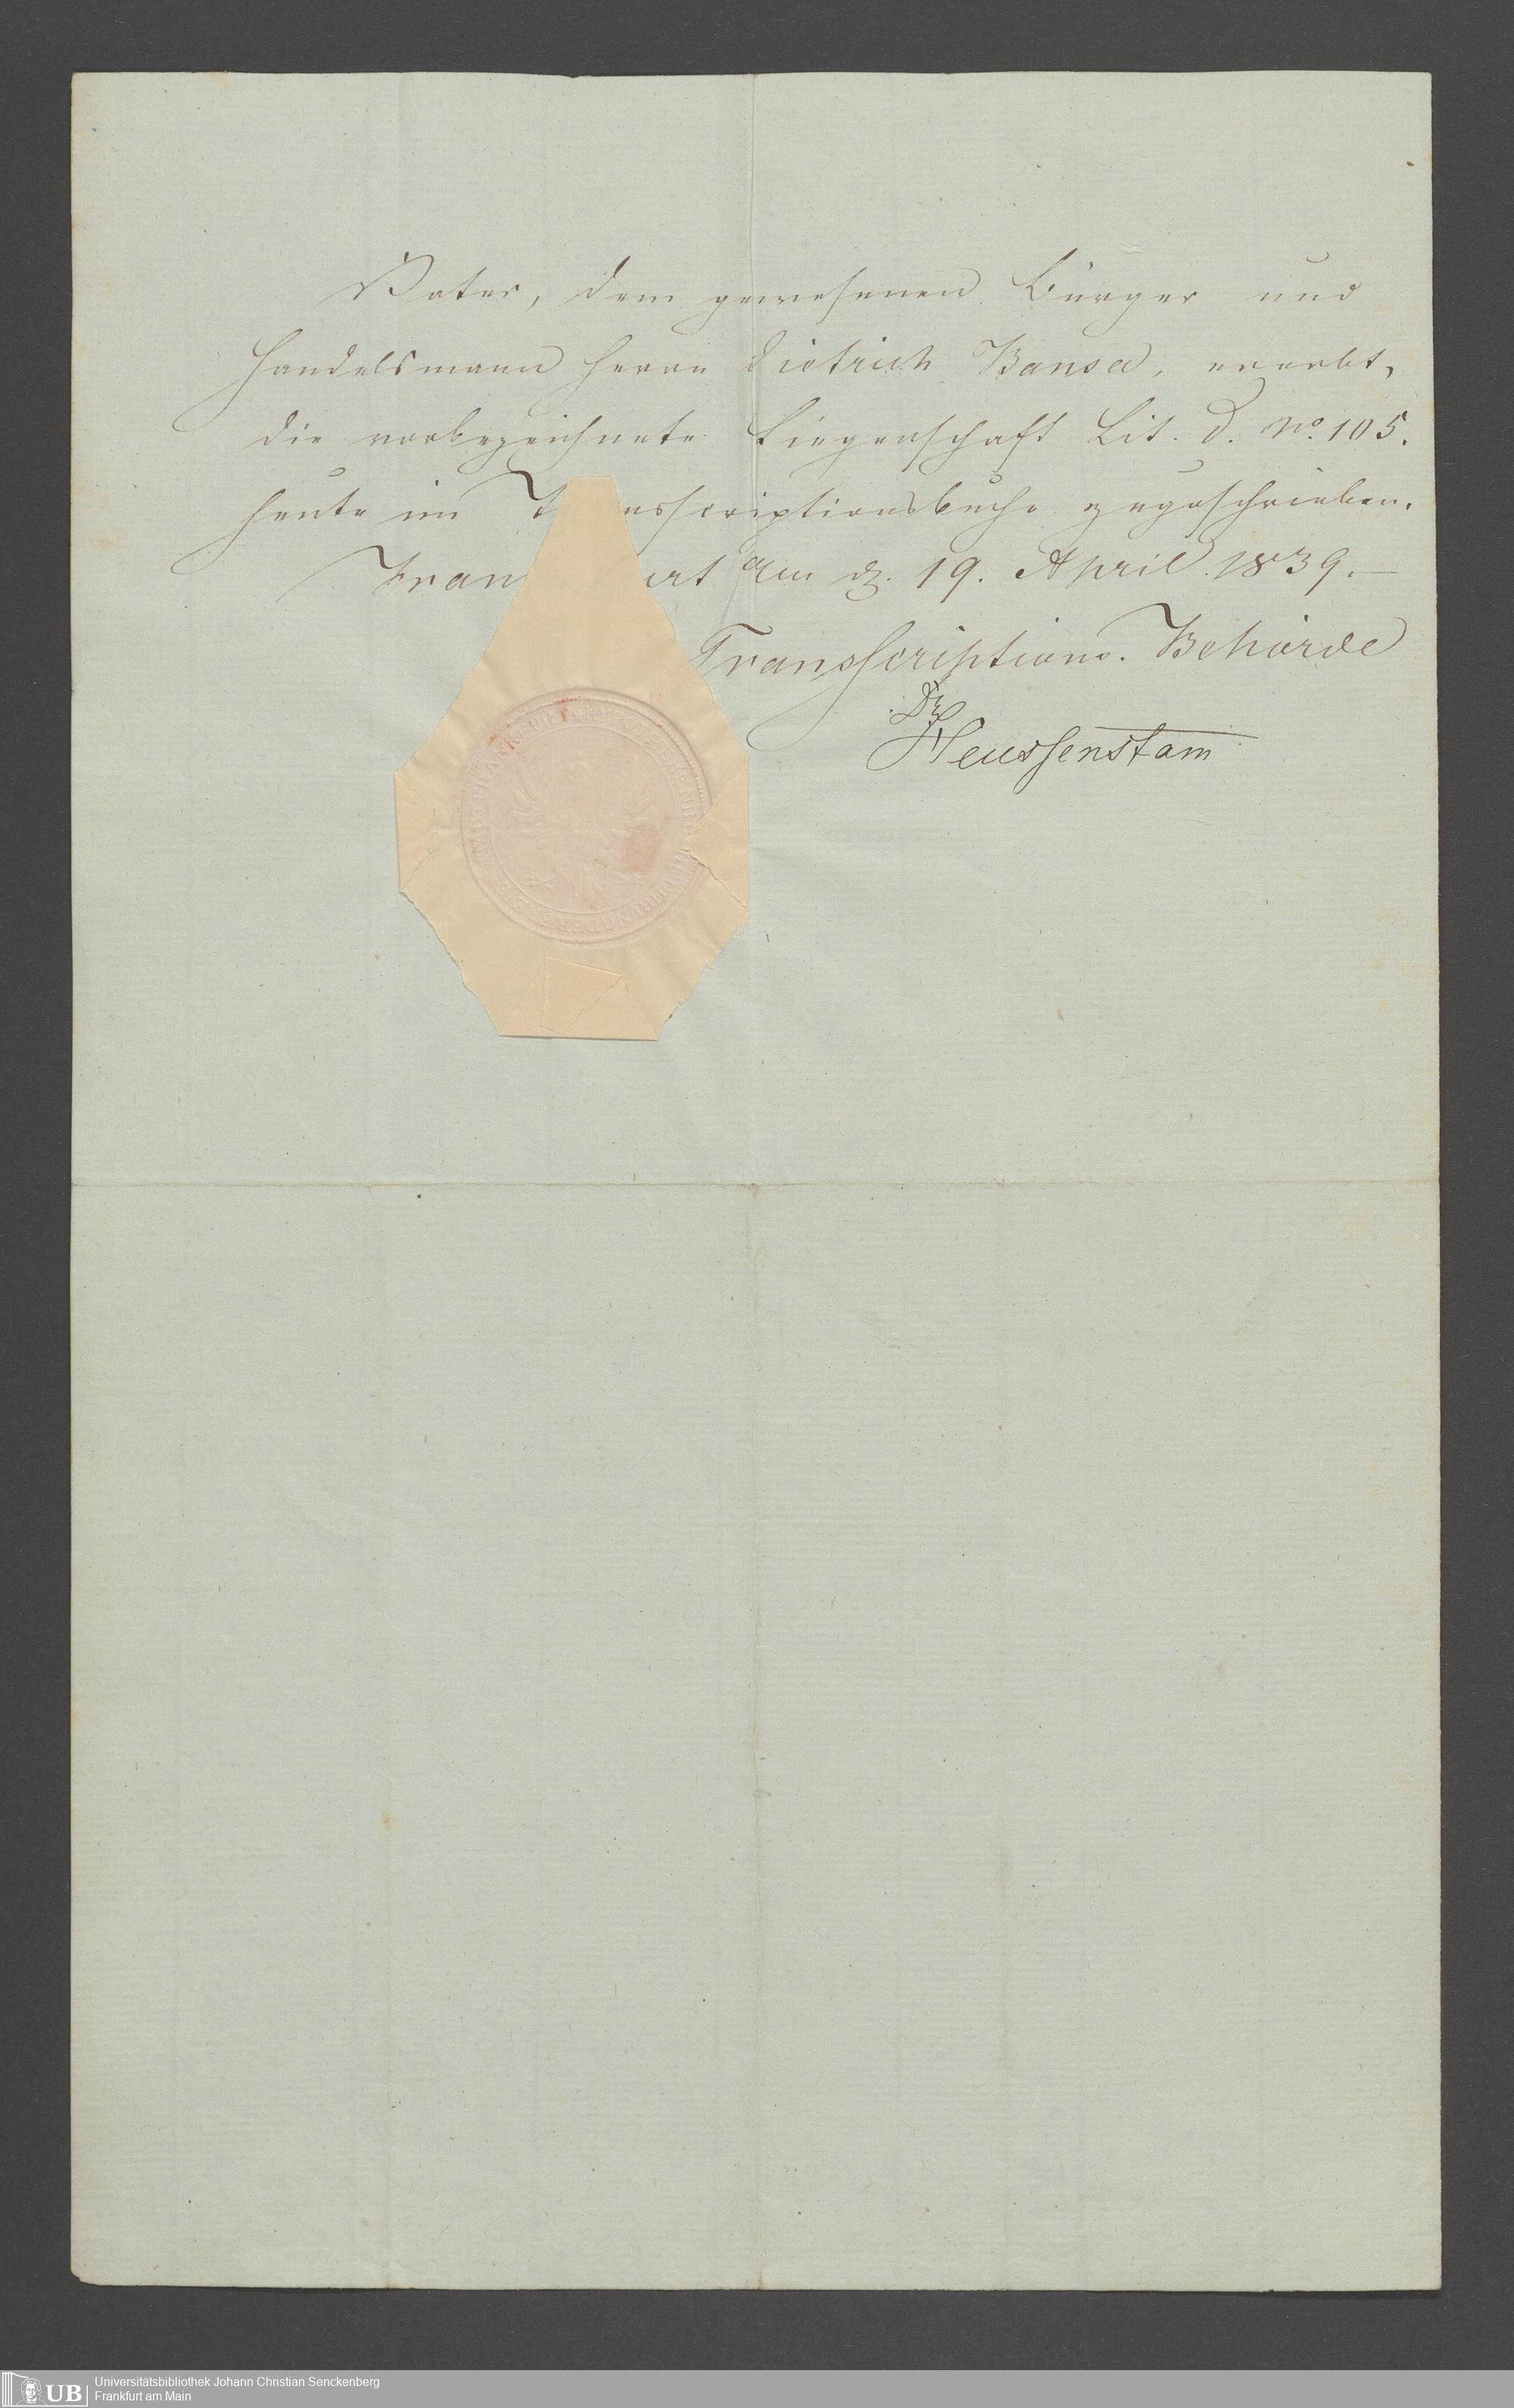 Vater, dem gewesenen Bürger und
Handelsmann Herrn Dietrich Bansa, ererbt,
die vorbezeichnete Liegenschaft Lit. D. No. 105.
heute im T nsscriptionsbuche zugeschrieben.
Fran urt am 19. April 1839.—
Transscriptions-Behörde
Dr
Heussenstam
UB
Universitätsbibliothek Johann Christian Senckenberg
Frankfurt am Main